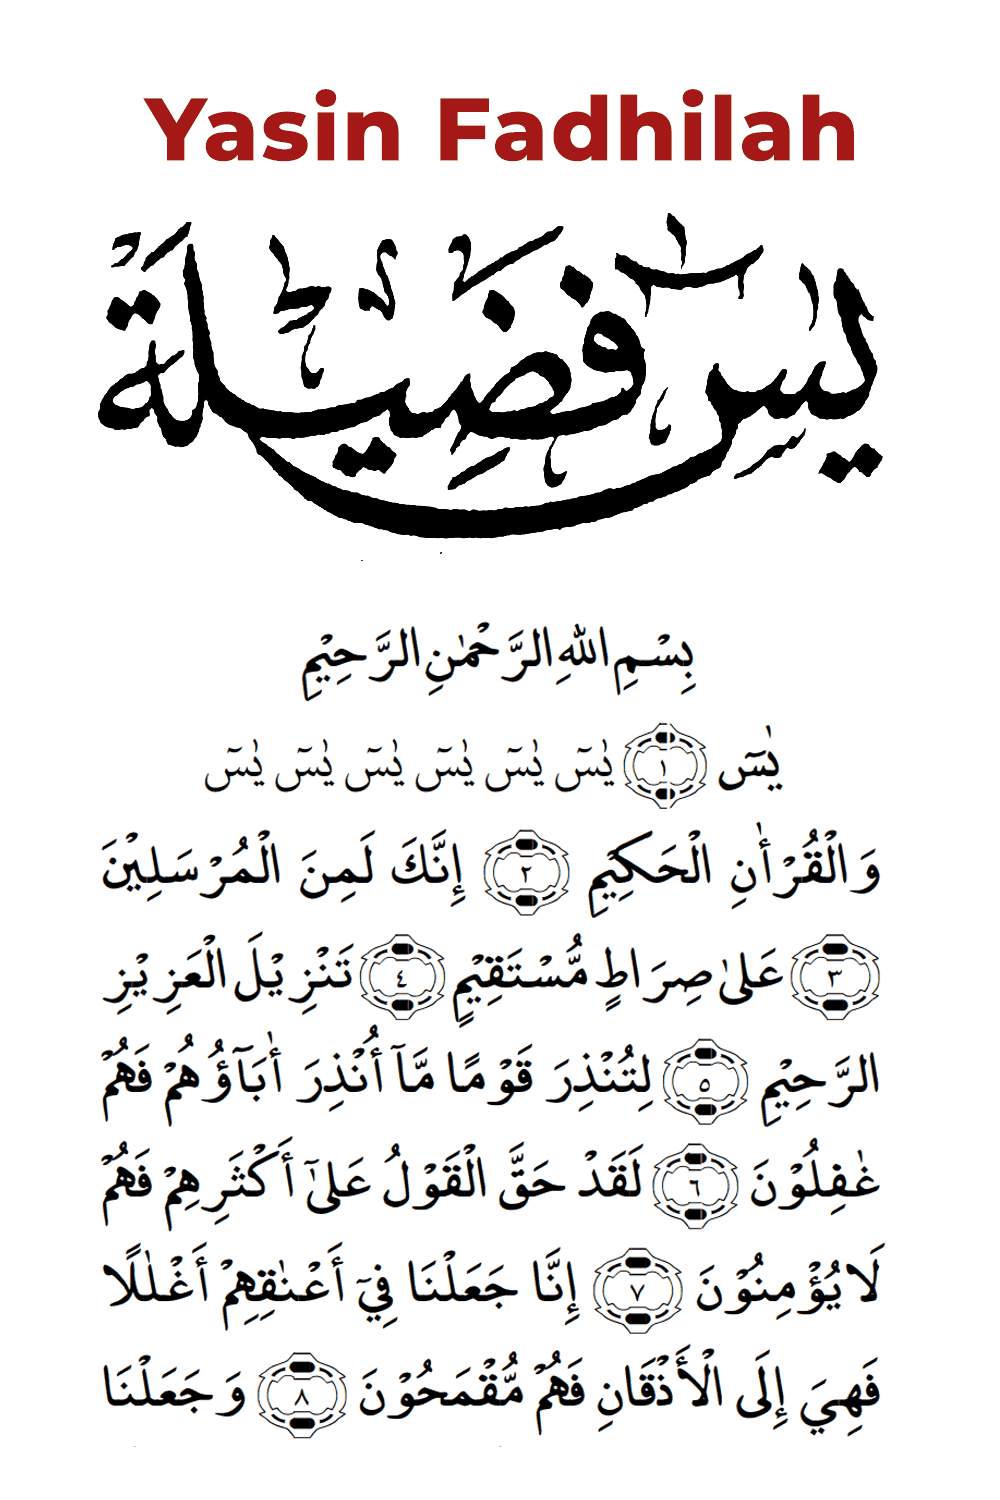 Yasin Fadhilah
يٰسٓ فَضِيْلَةٌ
بِسْمِ اللّٰهِ الرَّحْمٰنِ الرَّحِيْمِ
يٰسٓ ١ يٰسٓ يٰسٓ يٰسٓ يٰسٓ يٰسٓ يٰسٓ
وَالْقُرْأٰنِ الْحَكِيْمِ ٢ إِنَّكَ لَمِنَ الْمُرْسَلِيْنَ
٣ عَلىٰ صِرَاطٍ مُّسْتَقِيْمٍ ٤ تَنْزِيْلَ الْعَزِيْزِ
الرَّحِيْمِ ٥ لِتُنْذِرَ قَوْمًا مَّآ أُنْذِرَ أٰبَآؤُهُمْ فَهُمْ
غٰفِلُوْنَ ٦ لَقَدْ حَقَّ الْقَوْلُ عَلىٰٓ أَكْثَرِهِمْ فَهُمْ
لَا يُؤْمِنُوْنَ ٧ إِنَّا جَعَلْنَا فِيْٓ أَعْنٰقِهِمْ أَغْلٰلًا
فَهِيَ إِلَى الْأَذْقَانِ فَهُمْ مُّقْمَحُوْنَ ٨ وَجَعَلْنَا